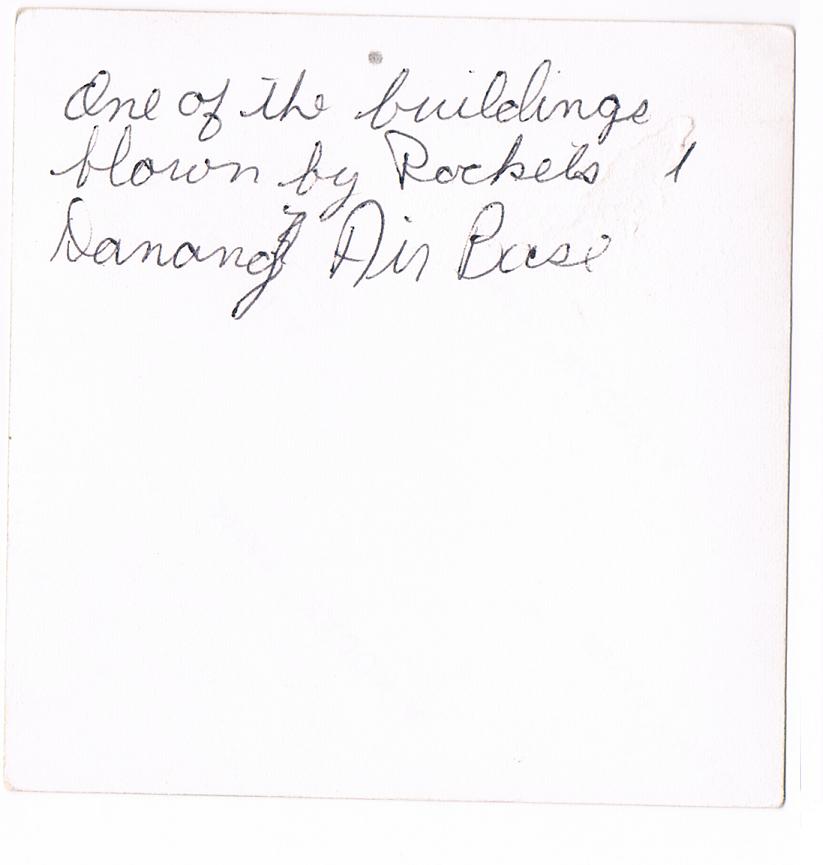 One of the buildings
blown by Rockets 1
Danang Air Base